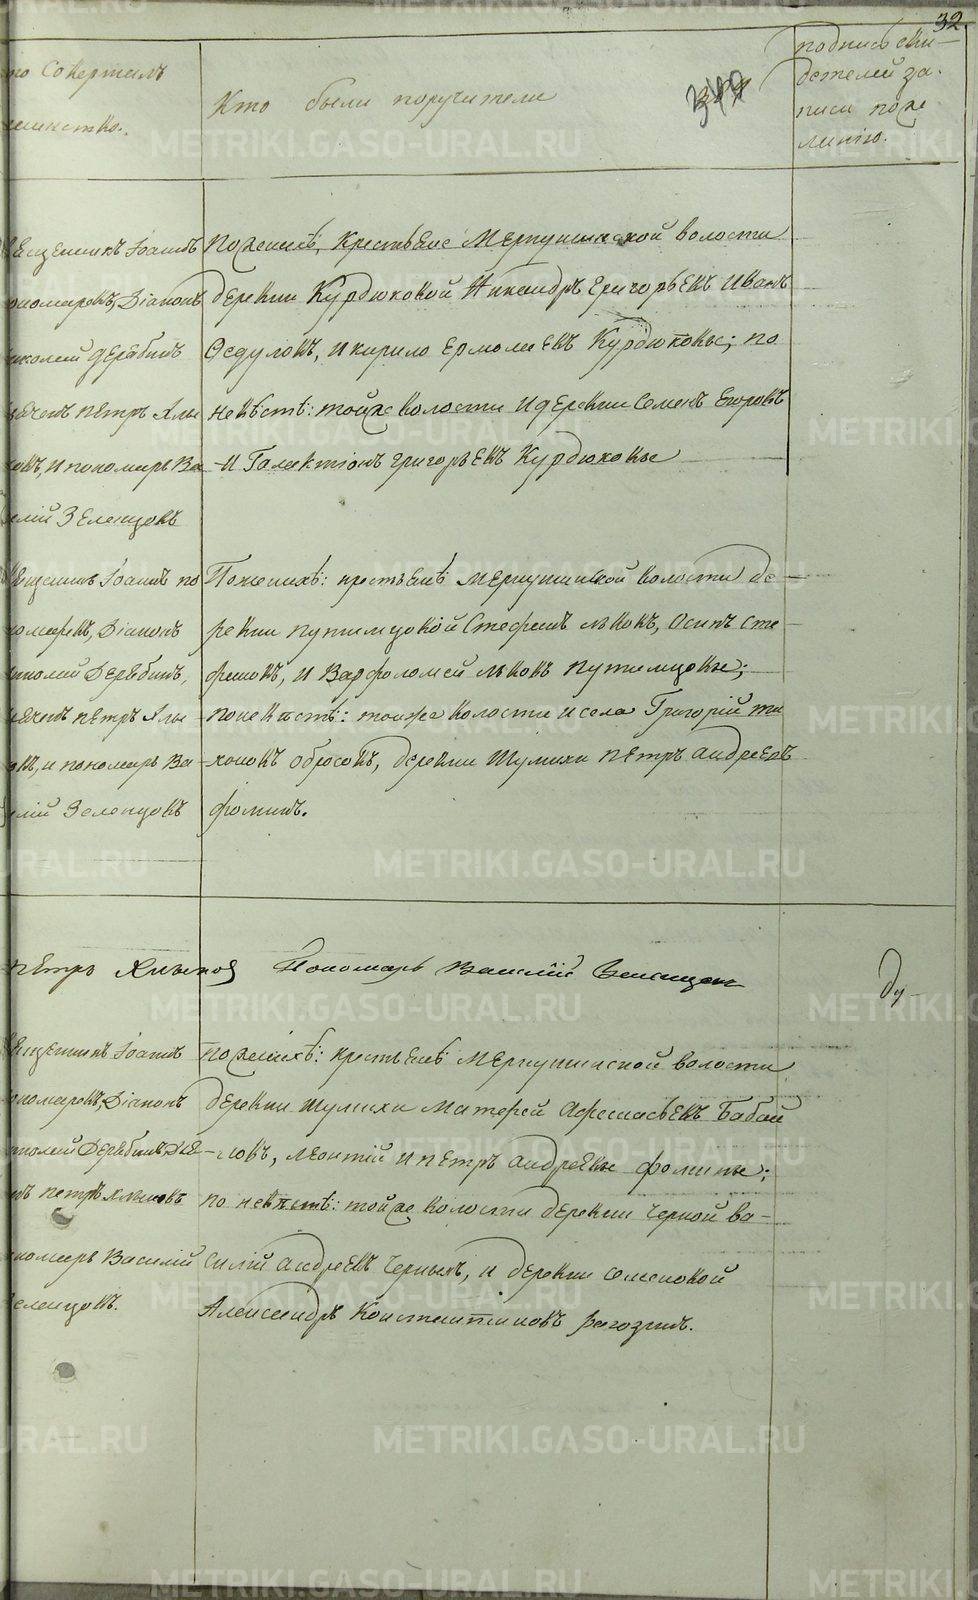 32
то совершилъ
таинство.
Кто были поручители
подпись сви-
детелей за-
писи по же
ланію.
Священникъ Іоаннъ
пономаревъ, Діаконъ
николай дерябинъ
дьячекъ петръ Хлы
новъ, и пономарь Ва
силій Зеленцовъ
По женихѣ, крестьяне Меркушинской волости
деревни Курдюковой Никандръ григорьевъ Иванъ
Ѳедуловъ, и кирило ермолаевъ Курдюковы; по
невѣстѣ: тойже волости и деревни Семенъ Егоровъ
и Галактіонъ григорьевъ Курдюковы
Священникъ Іоаннъ по
номаревъ, Діаконъ
николай Дерябинъ,
дьячекъ петръ Хлы
новъ, и пономарь Ва-
силій Зеленцовъ
По женихѣ: крестьянѣ Меркушинской волости де-
ревни путимцовой Стефанъ львовъ, Осипъ сте
фановъ, и Варфоломей львовъ путимцовы;
по невѣстѣ: тоиже волости и села Григорій ти
хоновъ обросовъ, деревни Шумихи петръ андреевъ
фоминъ.
петръ Хлыновъ Пономарь Василій Зеленцовъ
Священникъ Іоаннъ
пономаревъ, Діаконъ
николай Дерябинъ дья-
чекъ петръ хлыновъ
пономарь Василій
Зеленцовъ.
по женихѣ: крестьянѣ Меркушинской волости
деревни шумихи матфей афанасьевъ Бабай
ловъ, леонтій и петръ андреевы фомины;
по невѣстѣ: тойже волости деревни черной ва-
силій андреевъ черныхъ, и деревни семеновой
Александръ константиновъ рагозинъ.
METRIKI.GASO-URAL.RU